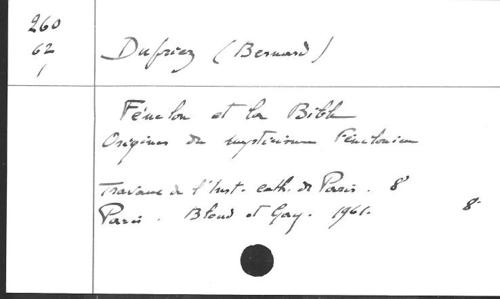 260
62
1
Dupriez (Bernard)
Fénelon et la Bible
Origines du mysticisme Fénelonien
Travaux de l'Inst. cath. de Paris. 8
Paris. Bloud et Gay. 1961.
8°